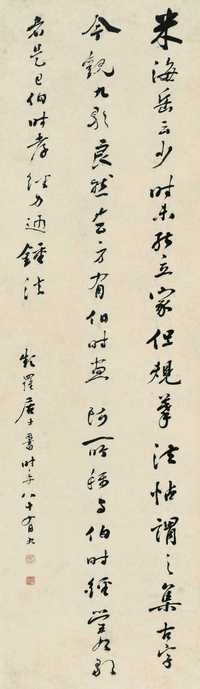 米海岳云少时未能立家但规摹法帖谓之集古字
今观九歌良然 吉方有伯时画 所称与伯时经营九歌
者是已伯时孝经力追鍾法
频罗居士書时年八十有九